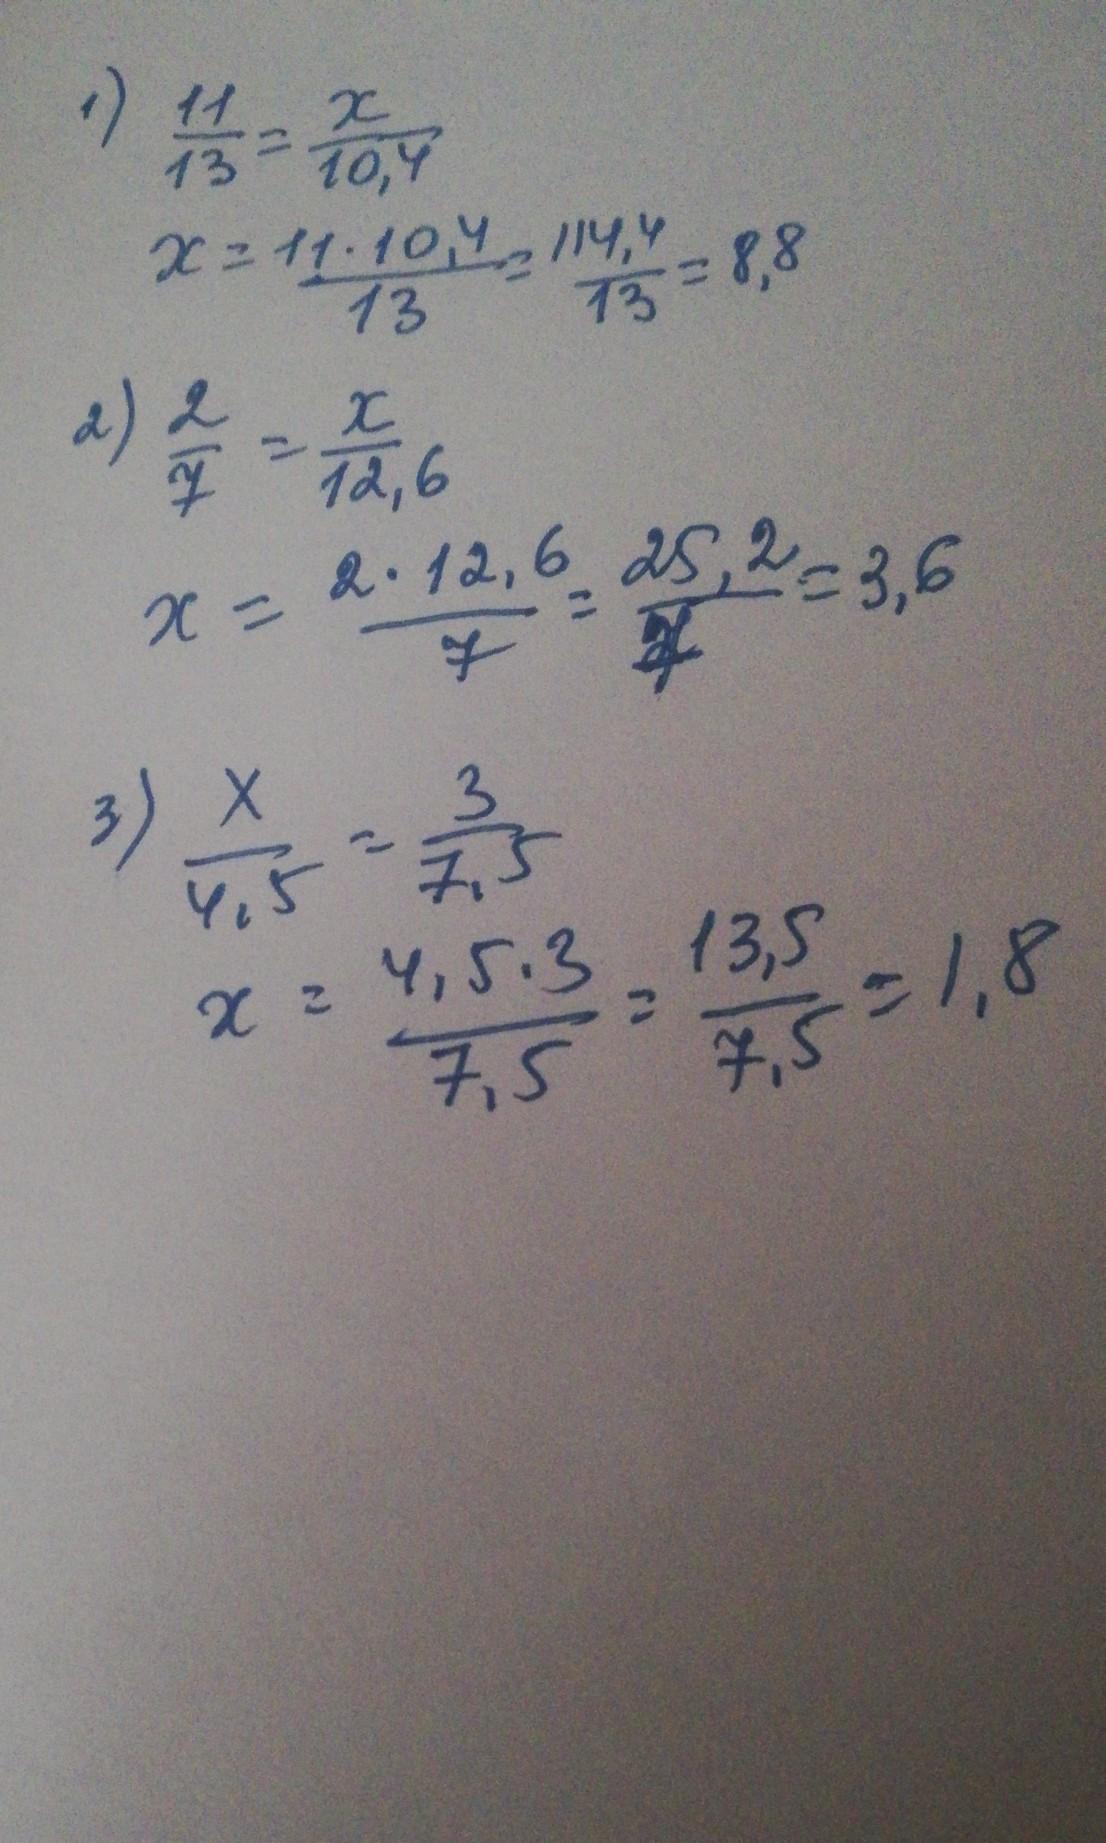 1) 11/13 = x/10,4
x = 11·10,4/13 = 114,4/13 = 8,8
2) 2/7 = x/12,6
x = 2·12,6/7 = 25,2/7 = 3,6
3) x/4,5 = 3/7,5
x = 4,5·3/7,5 = 13,5/7,5 = 1,8